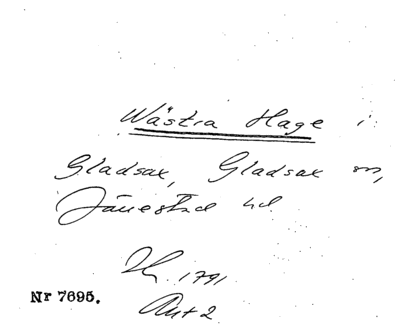 Wästra Hage i
Gladsax, Gladsax sn,
Järrestad hd
1791
Akt 2
Nr 7695.